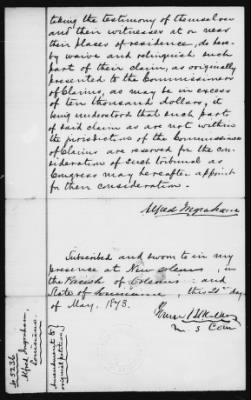 taking the testimony of themselves
and their witnesses at or near
their places of residence, do here-
by waive and relinquish such
part of their claim, as originally
presented to the Commissioners
of Claims, as may be in excess
of ten thousand dollars, it
being understood that such parts
of said claim as are not within
the jurisdiction of the Commissioners
of Claims are reserved for the con-
sideration of such tribunal as
Congress may hereafter appoint
for their consideration.
Alfred Ingraham
Subscribed and sworn to in my
presence at New Orleans, in
the Parish of Orleans: and
State of Louisiana, this 21st day
of May, 1873.
U. S. Com
No 5236
Alfred Ingraham,
Louisiana.
Amendment to
original petition